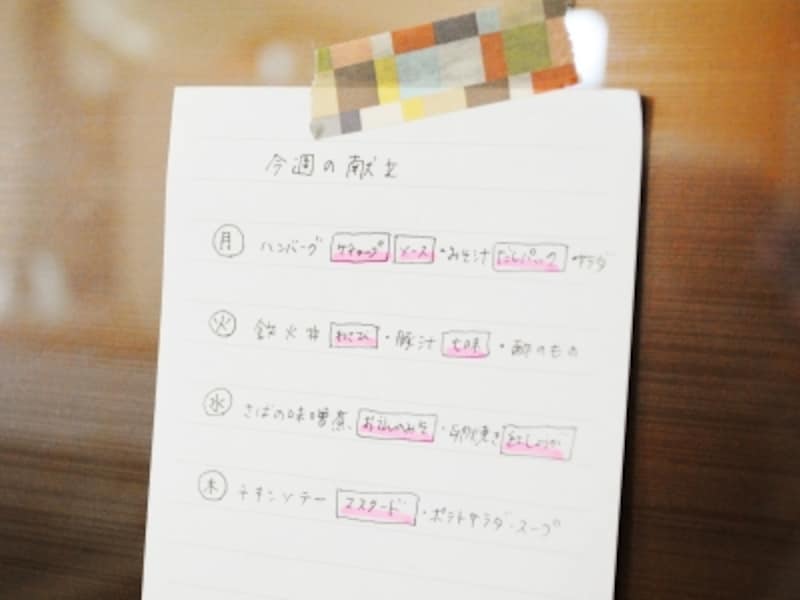 今週の献立
月 ハンバーグ ケチャップ ソース ・みそ汁 だしパック ・サラダ
火 鉄火丼 わさび ・豚汁 七味 ・酢のもの
水 さばの味噌煮 ・卵焼き 紅しょうが
木 チキンソテー マスタード ・ポテトサラダ・スープ